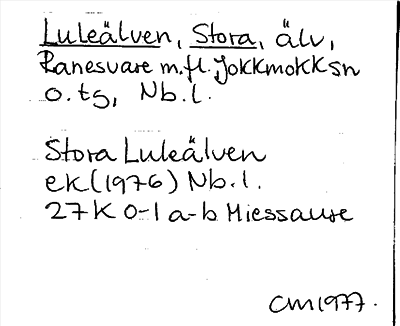 Luleälven, Stora, älv,
Ranesvare m.fl. Jokkmokk sn
o. tg, Nb.l.
Stora Luleälven
ek (1976) Nb.l.
27K 0-1 a-b Miessaure
CM 1977.